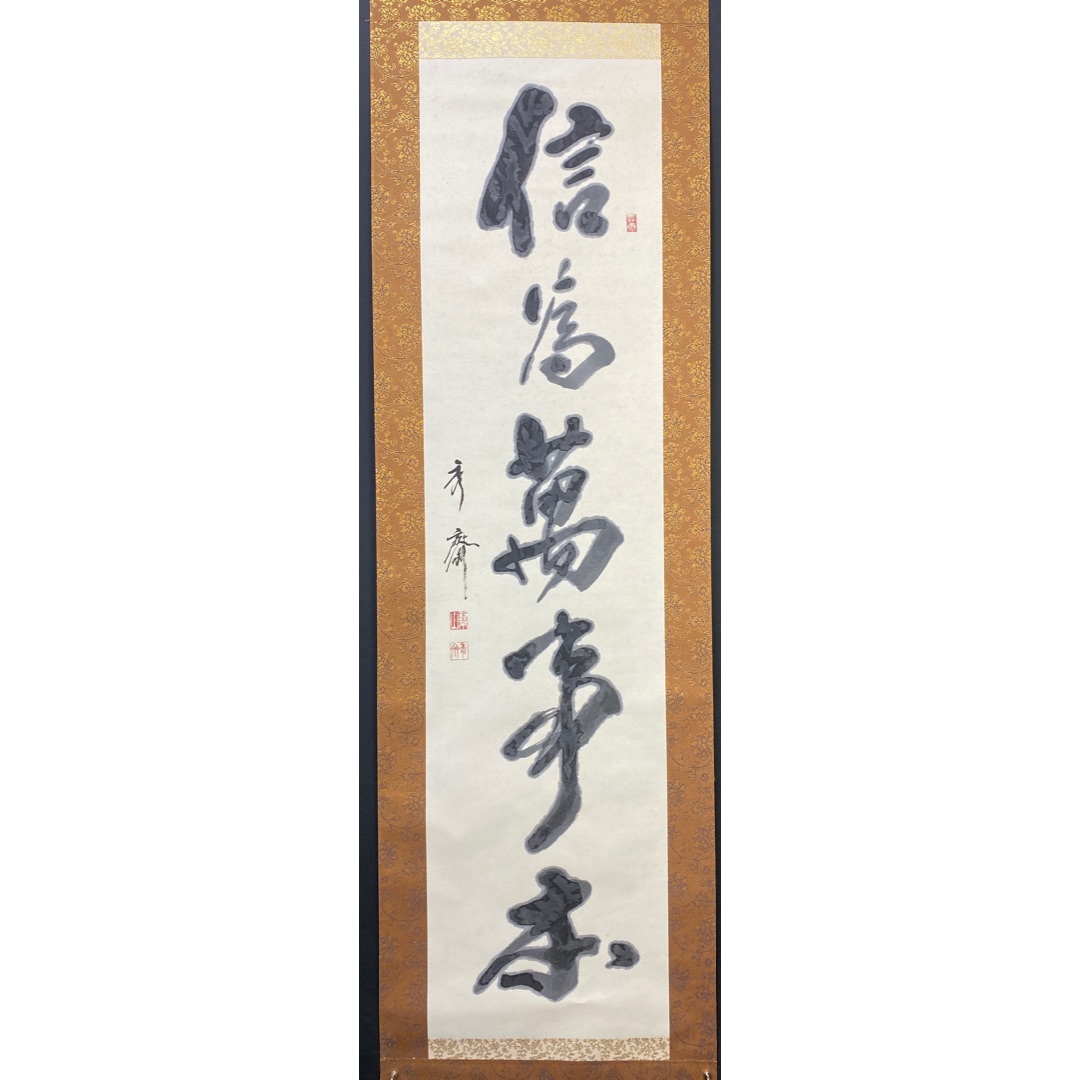 信為萬事本
齋